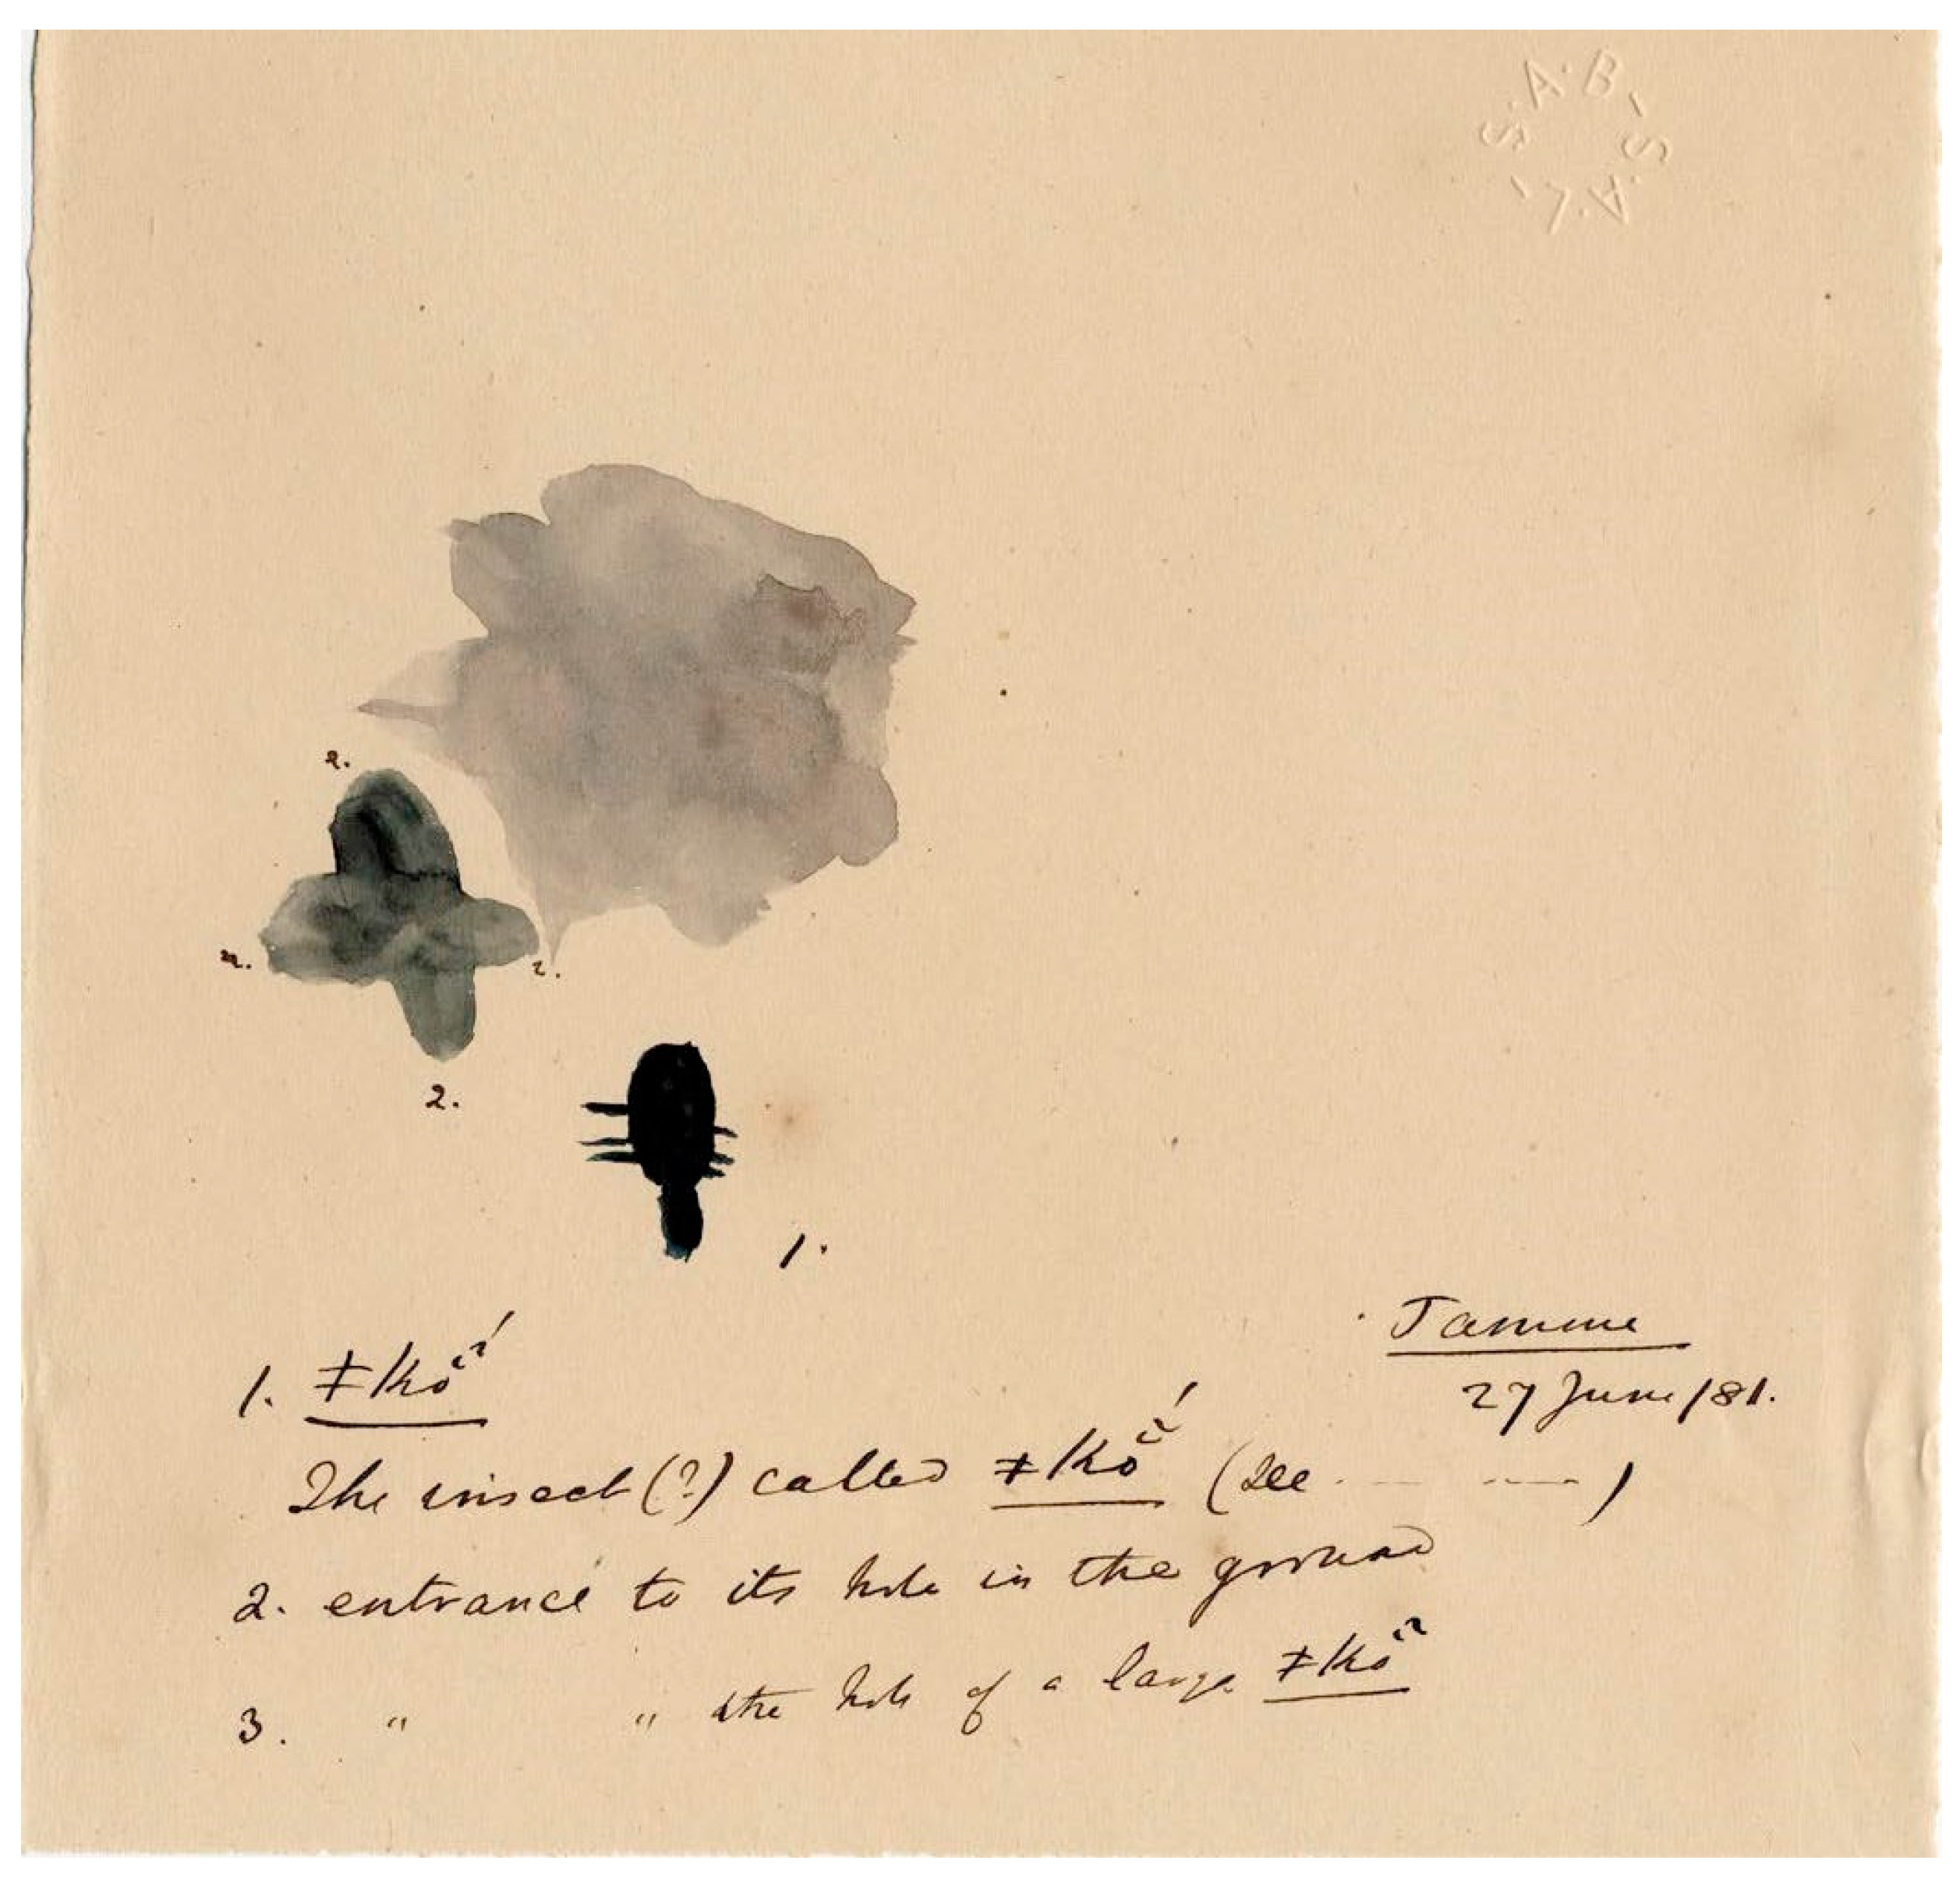 S.A.B.S.A.L.
2.
2.
2.
2.
1.
Tamme
27 June /81.
1. ǂkõ´
The insect (?) called ǂkõ´ (see --- ---)
2. entrance to its hole in the ground
3. " " the hole of a large ǂkõ